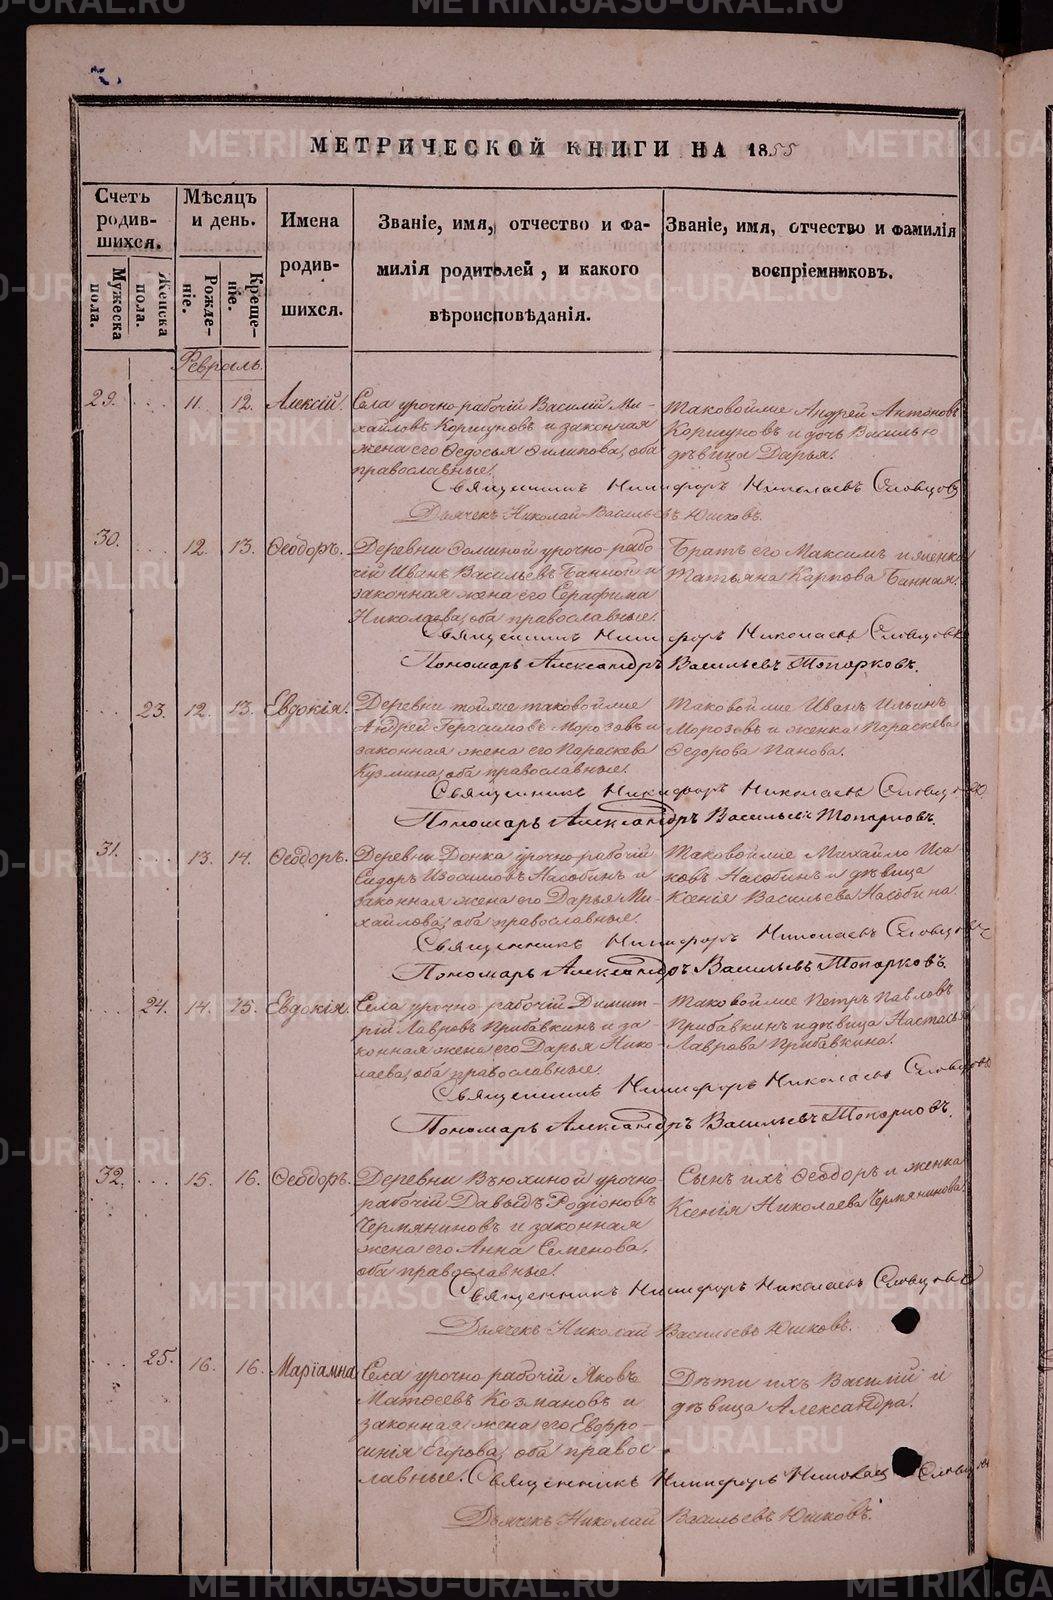 МЕТРИЧЕСКОЙ КНИГИ НА 1855
Счетъ родив-шихся.
Мѣсяцъ и день.
Имена родив-шихся.
Званіе, имя, отчество и фа-
милія родителей, и какого
вѣроисповѣданія.
Званіе, имя, отчество и фамилія
воспріемниковъ.
Мужеска пола.
Женска пола.
Рожде-ніе.
Креще-ніе.
Февраль.
29. 11. 12. Алексій.
Села урочно-рабочій Василій Ми-
хайловъ Коршуновъ и законная
жена его Ѳедосья Филипова, оба
православные.
Таковойже Андрей Антоновъ
Коршуновъ и дочь Василью
дѣвица Дарья.
Священникъ Никифоръ Николаевъ Словцовъ
Дьячекъ Николай Васильевъ Юшковъ.
30. 12. 13. Ѳеодоръ.
Деревни урочно-рабо-
чій Иванъ Васильевъ Банной и
законная жена его Серафима
Николаева, оба православные.
Братъ его Максимъ и женка
Татьяна Карпова Банная.
Священникъ Никифоръ Николаевъ Словцовъ
Пономарь Александръ Васильевъ Топорковъ.
23. 12. 13. Евдокія.
Деревни тойже таковойже
Андрей Герасимовъ Морозовъ и
законная жена его Параскева
Кузмина, оба православные.
Таковойже Иванъ Ильинъ
Морозовъ и женка Параскева
Ѳедорова Панова.
Священникъ Никифоръ Николаевъ Словцовъ
Пономарь Александръ Васильевъ Топорковъ.
31. 13. 14. Ѳеодоръ.
Деревни Донка урочно-рабочій
Сидоръ Изосимовъ Насобинъ и
законная жена его Дарья Ми-
хайлова, оба православные.
Таковойже Михайло Иса
ковъ Насобинъ и дѣвица
Ксенія Васильева Насобина.
Священникъ Никифоръ Николаевъ Словцовъ
Пономарь Александръ Васильевъ Топорковъ.
24. 14. 15. Евдокія.
Села урочно-рабочій Димит-
рій Лавровъ Прибавкинъ и за-
конная жена его Дарья Нико-
лаева, оба православные.
Таковойже Петръ Павловъ
Прибавкинъ и дѣвица Настасья
Лаврова Прибавкина.
Священникъ Никифоръ Николаевъ Словцовъ
Пономарь Александръ Васильевъ Топорковъ.
32. 15. 16. Ѳеодоръ.
Деревни Вьюхиной урочно-
рабочій Давыдъ Родіоновъ
Чермяниновъ и законная
жена его Анна Семенова,
оба православные.
Сынъ ихъ Ѳеодоръ и женка
Ксенія Николаева Чермянинова.
Священникъ Никифоръ Николаевъ Словцовъ
Дьячекъ Николай Васильевъ Юшковъ.
25. 16. 16. Маріамна
Села урочно-рабочій Яковъ
Матѳеевъ Козмановъ и
законная жена его Евфро-
синія Егорова, оба правос-
лавные.
Дѣти ихъ Василій и
дѣвица Александра.
Священникъ Никифоръ Николаевъ Словцовъ
Дьячекъ Николай Васильевъ Юшковъ.